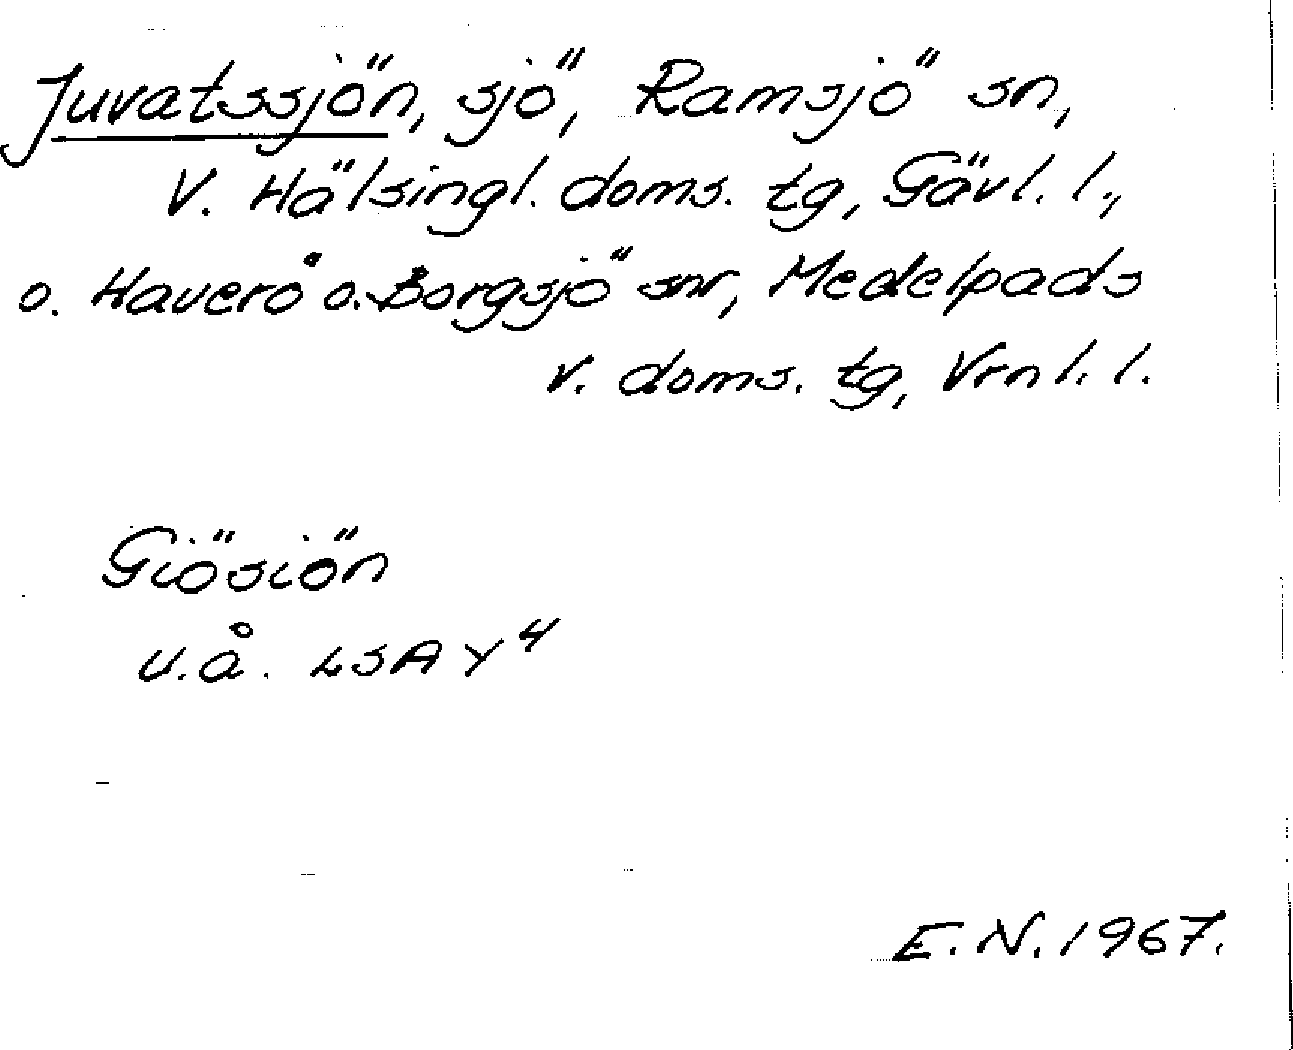 Juvatssjön, sjö, Ramsjö sn,
V. Hälsingl. doms. tg, Gävl. l.,
o. Haverö o. Borgsjö snr, Medelpads
V. doms. tg, Vrnl. l.
Giösiön
u.å. LSA Y⁴
E. N. 1967.